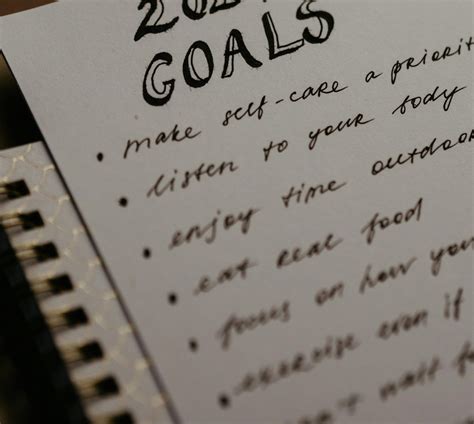 GOALS
• make self-care a priorit
• listen to your body
• enjoy time outdoor
• eat real food
• focus on how you
• exercise even if
• n't wait f